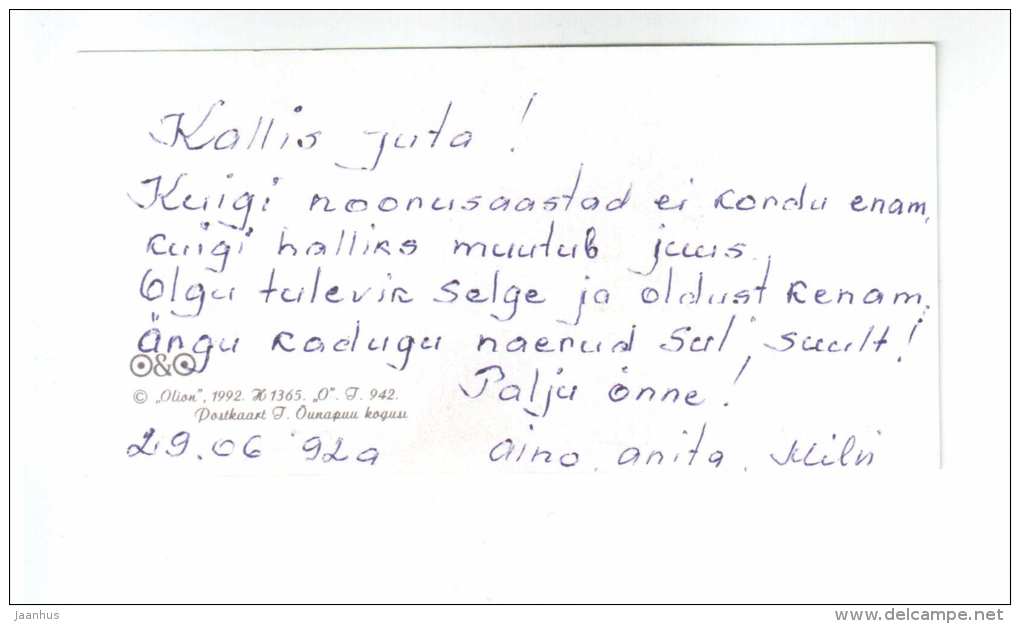 Kallis Juta!
Kuigi noorusaastad ei kordu enam,
kuigi halliks muutub juus.
Olgu tulevik selge ja oldust kenam,
ärgu kadugu naerud Sul suult!
Palju õnne!
O&O
© „Olion", 1992. H 1365. „O". T. 942.
Postkaart T. Õunapuu kogusu
29.06 92a Aino. Anita.
jaanhus
www.delcampe.net